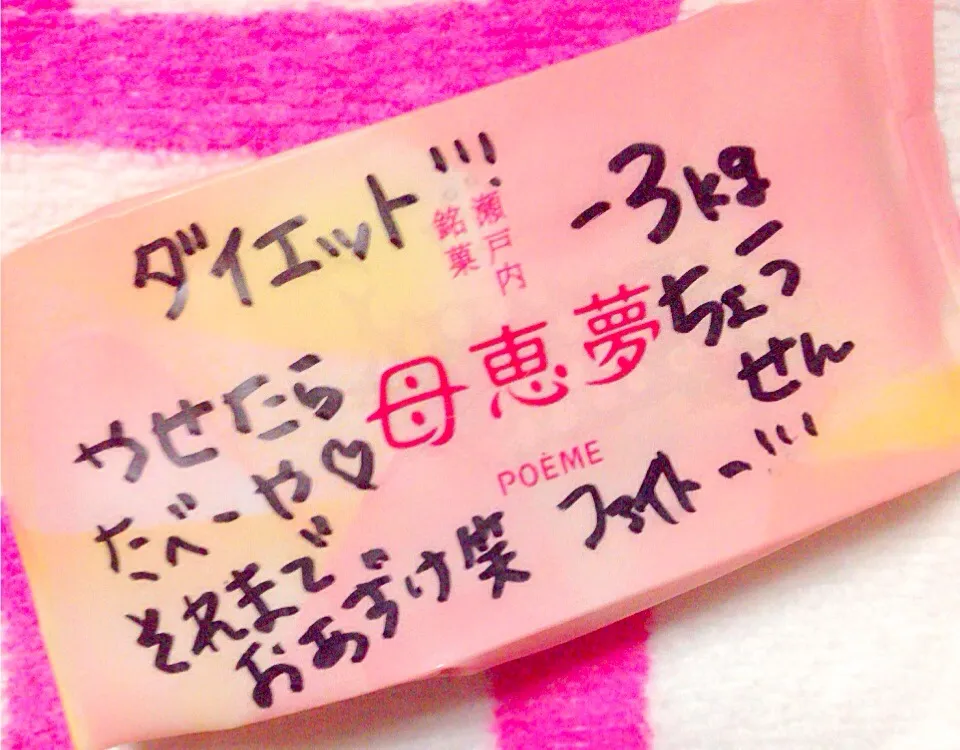 ダイエット!!!
-3kg
ちょう
せん
瀬戸内
銘菓
母恵夢
POÈME
やせたら
たべーや♡
それまで
おあずけ笑
ファイトー!!!